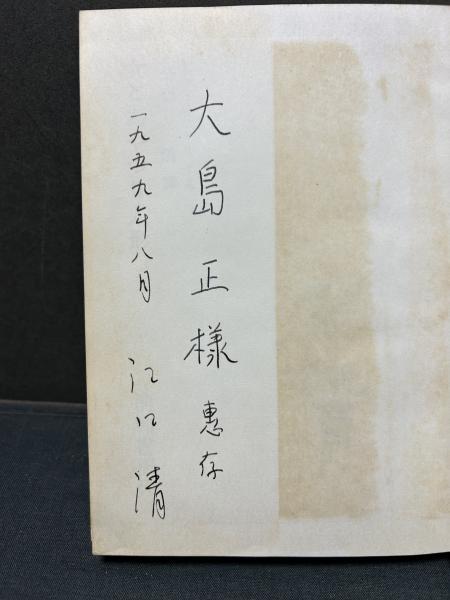 大島正様 惠存
一九五九年八月 江口清